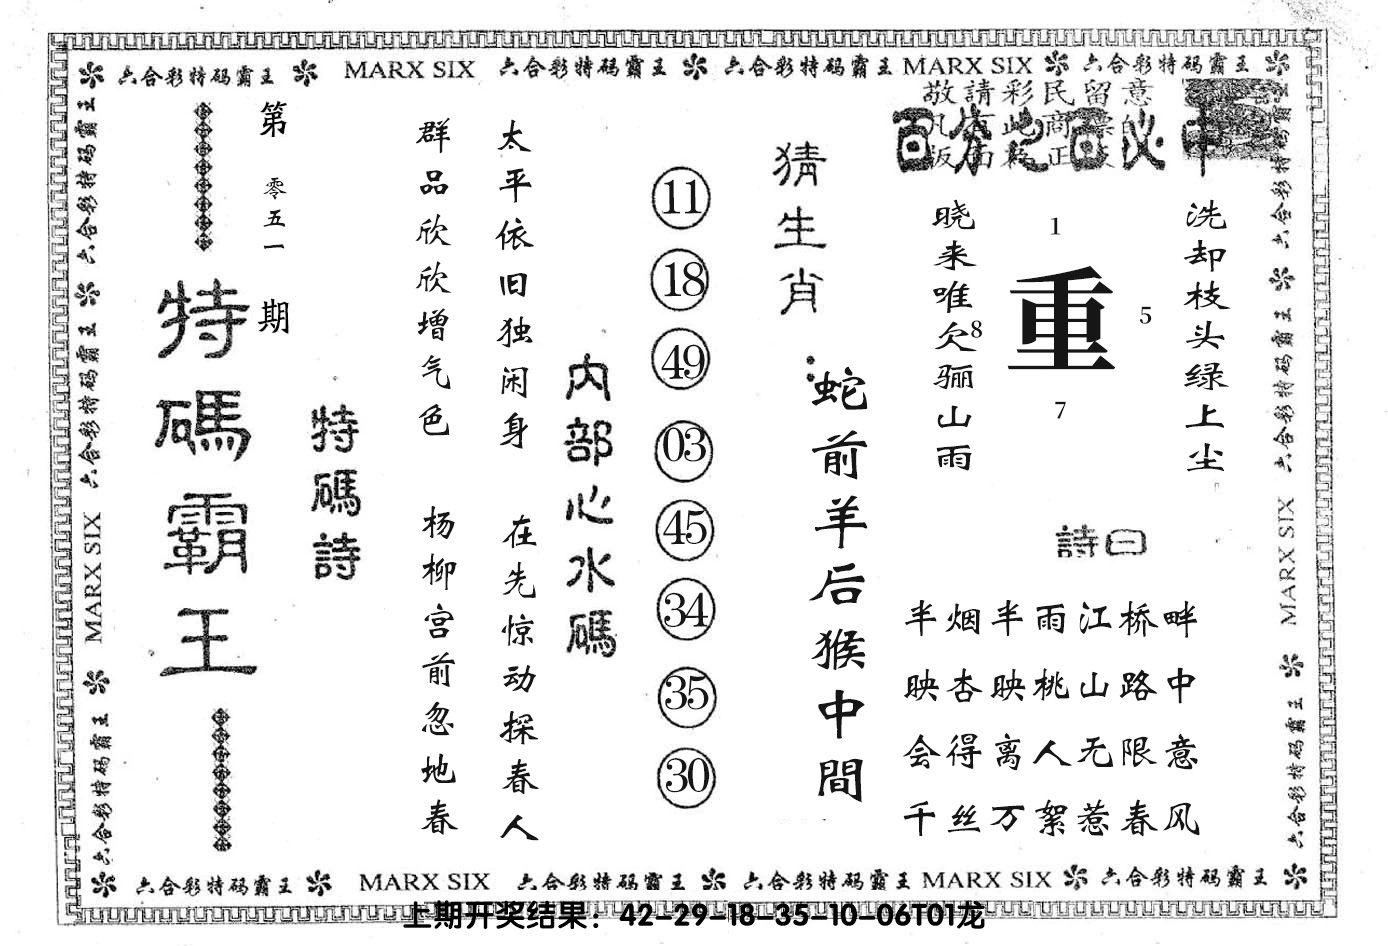 六合彩特码霸王 MARX SIX 六合彩特码霸王 六合彩特码霸王 MARX SIX 六合彩特码霸王
六合彩特码霸王 六合彩特码霸王 MARX SIX 六合彩特码霸王
特碼霸王
第零五一期
特碼詩
群品欣欣增气色 杨柳宫前忽地春
太平依旧独闲身 在先惊动探春人
内部心水碼
11
18
49
03
45
34
35
30
猜生肖:
蛇前羊后猴中間
敬請彩民留意
百分之百必中
晓来唯欠骊山雨
1
8
重
5
7
洗却枝头绿上尘
詩曰
半烟半雨江桥畔
映杏映桃山路中
会得离人无限意
千丝万絮惹春风
六合彩特码霸王 六合彩特码霸王 MARX SIX 六合彩特码霸王
六合彩特码霸王 MARX SIX 六合彩特码霸王 六合彩特码霸王 MARX SIX 六合彩特码霸王
上期开奖结果：42-29-18-35-10-06T01龙